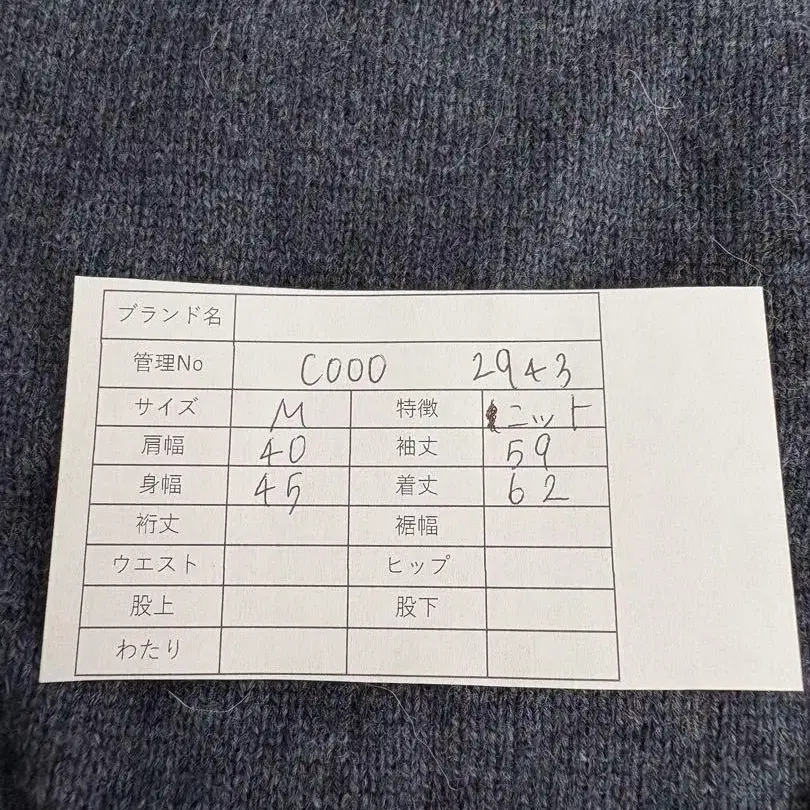 ブランド名
管理No C000 2943
サイズ M 特徴 ニット
肩幅 40 袖丈 59
身幅 45 着丈 62
裄丈 裾幅
ウエスト ヒップ
股上 股下
わたり